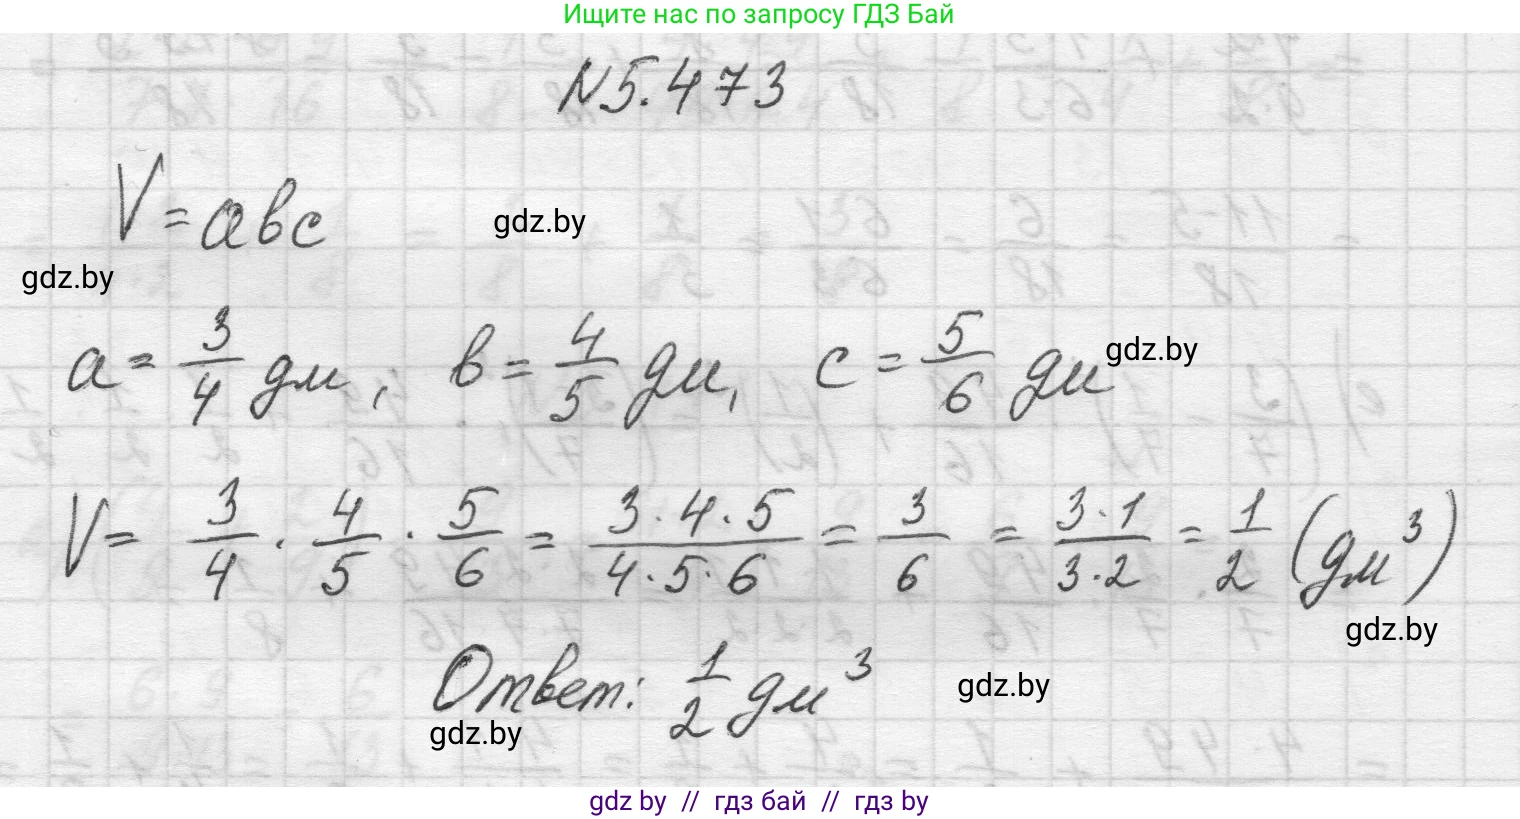 Ищите нас по запросу ГДЗ Бай
N5.473
V=авс
gdz.by
gdz.by
a = 3/4 дм, в = 4/5 дм, с = 5/6 дм
gdz.by
V = 3/4 · 4/5 · 5/6 = 3·4·5/4·5·6 = 3/6 = 3·1/3·2 = 1/2 (дм³)
gdz.by
Ответ: 1/2 дм³
gdz.by
gdz.by
gdz by // гдз бай // гдз by